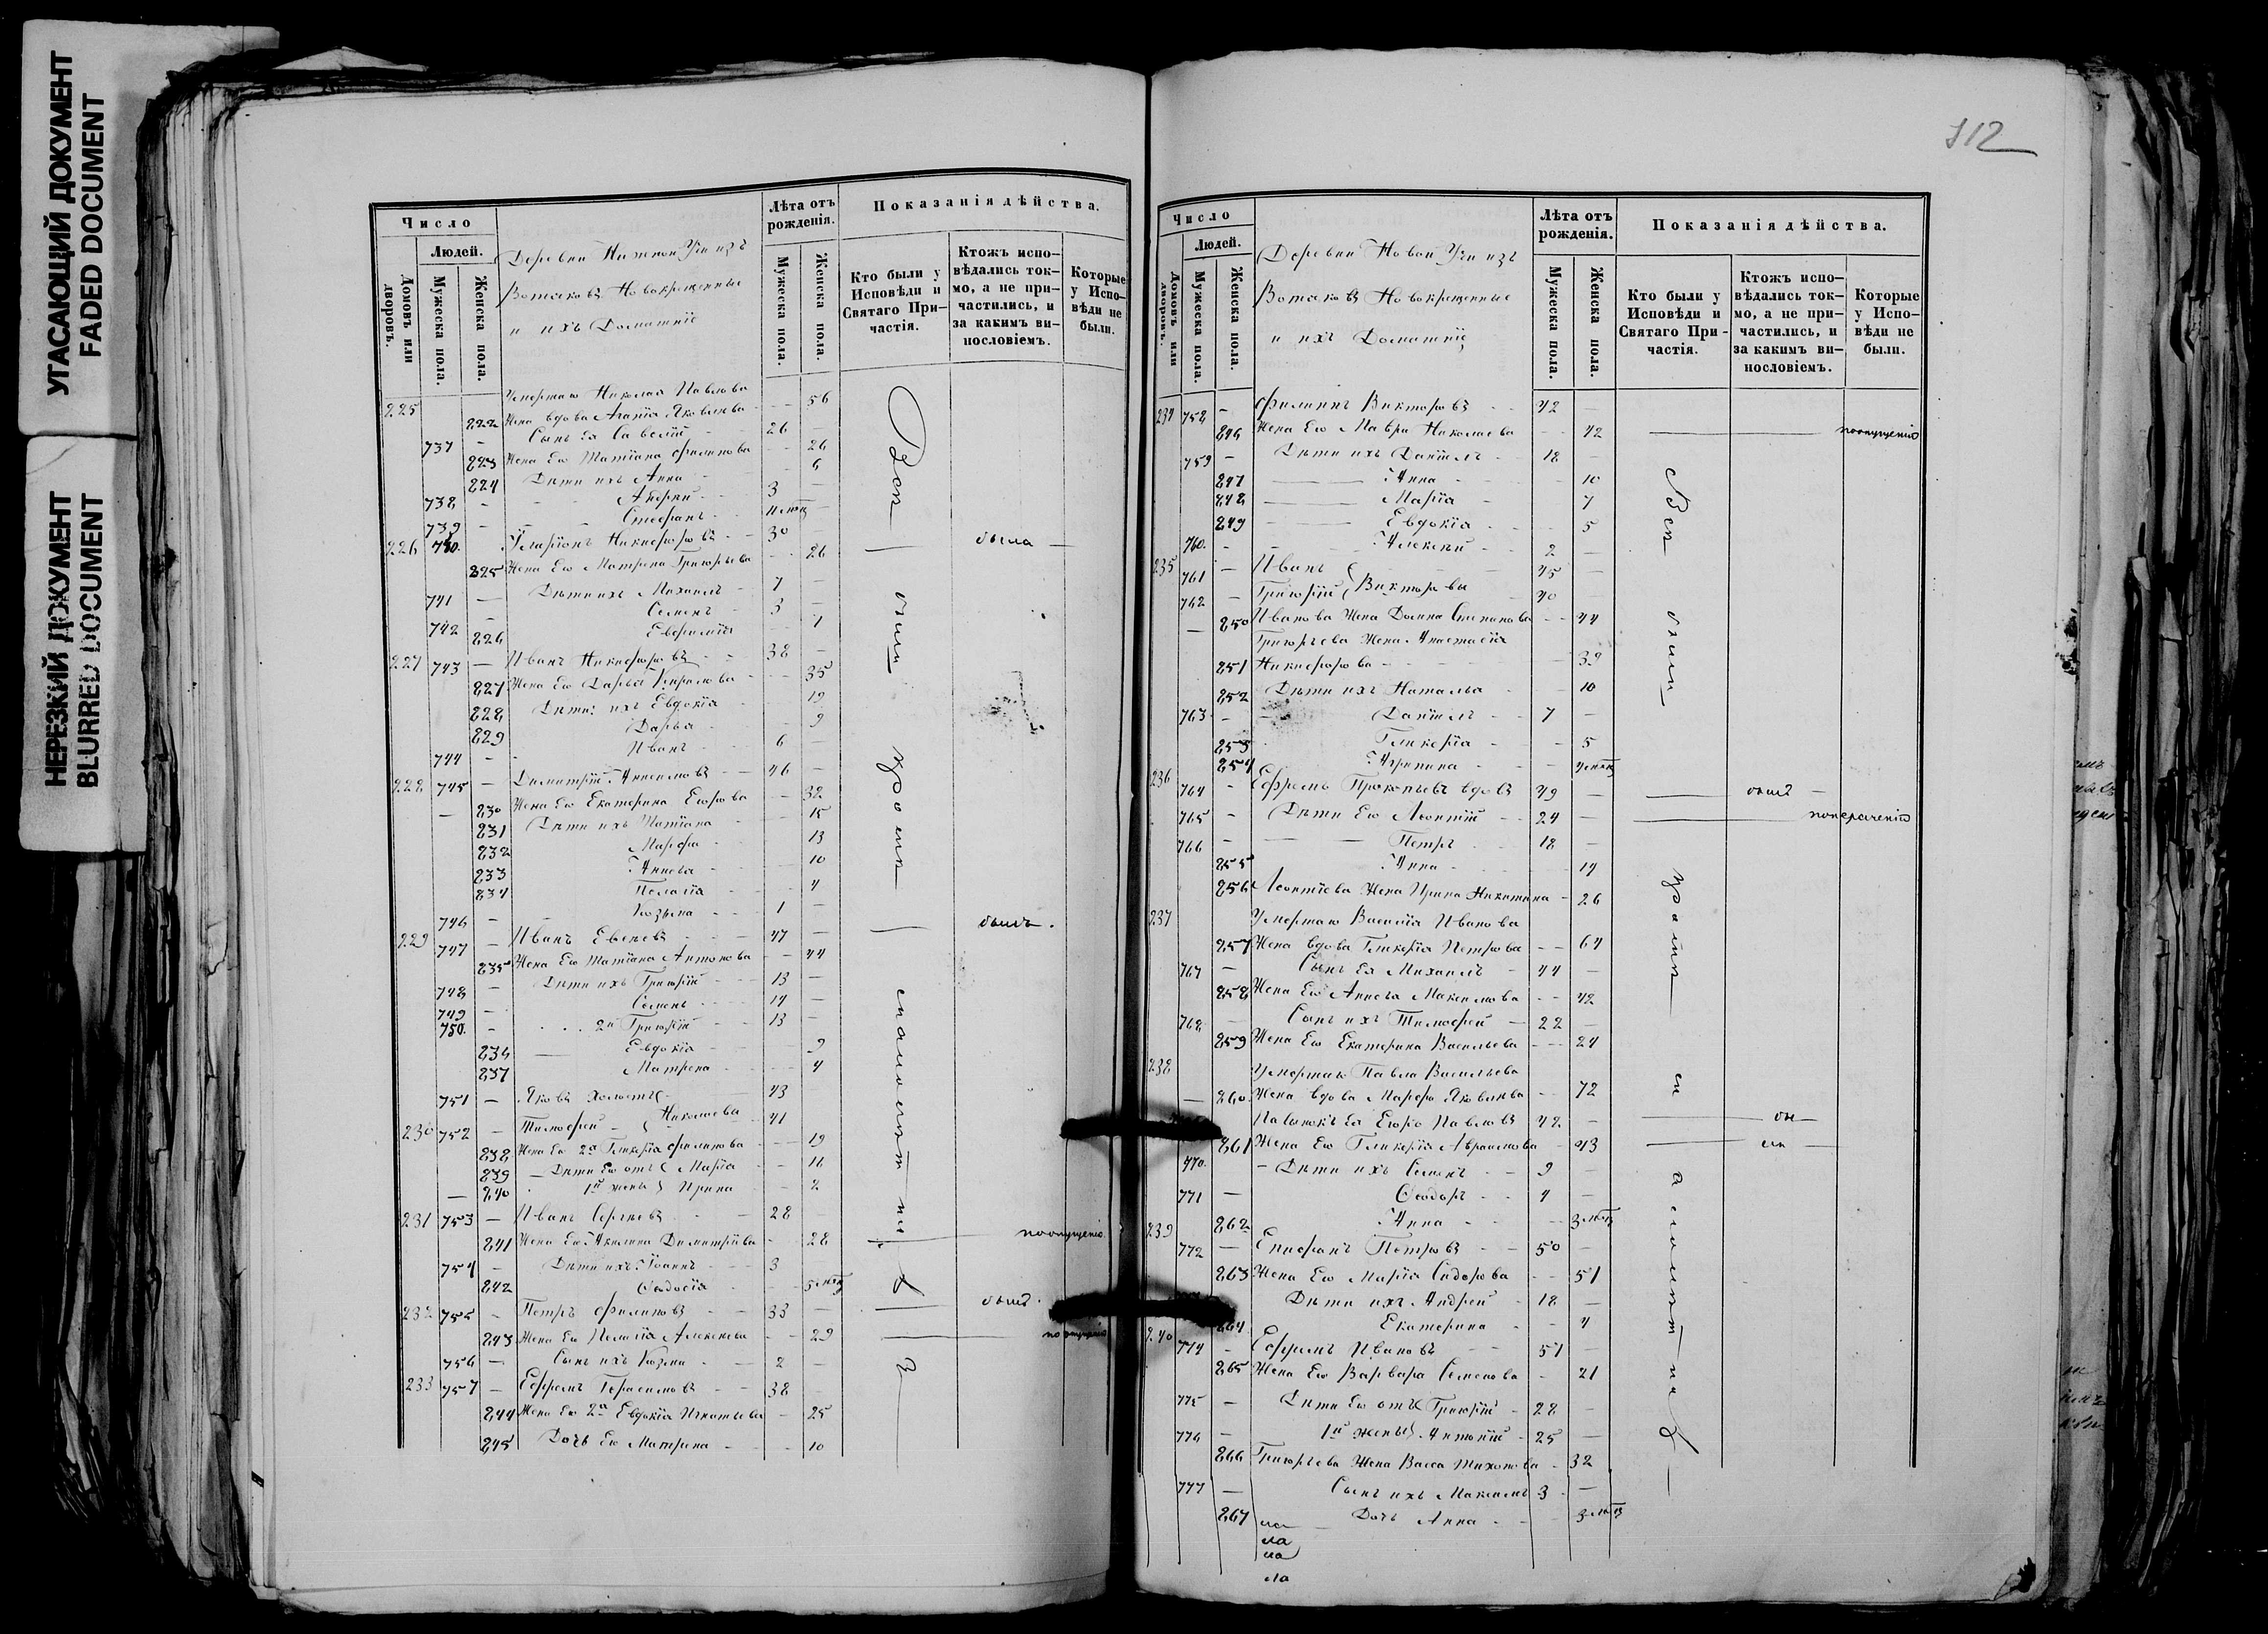 УГАСАЮЩИЙ ДОКУМЕНТ
FADED DOCUMENT
НЕРЕЗКИЙ ДОКУМЕНТ
BLURRED DOCUMENT
Число
Людей.
Домовъ или дворовъ.
Мужеска пола.
Женска пола.
Вотяковъ Новокрещенные
и ихъ Домашніе
Лѣта отъ рожденія.
Мужеска пола.
Женска пола.
Показанія дѣйства.
Кто были у Исповѣди и Святаго Причастія.
Ктожъ исповѣдались токмо, а не причастились, и за какимъ винословіемъ.
Которые у Исповѣди не были.
225 Умершаго Николая Павлова
222 Жена вдова Агапія Яковлева 56
737 Сынъ Ея Савелій 26
223 Жена Его Татіана Филипова 26
224 Дѣти ихъ Анна 6
738 3
739 Стефанъ
226 740. Иларіонъ Никифоровъ 30 была
225 Жена Его Матрена Григорьева 26
741 Дѣти ихъ Михаилъ 7
742 Семенъ 3
226 Евфимія 1
227 743 Иванъ Никифоровъ 38
227 Жена Его Дарья Кирилова 35
228 Дѣти ихъ Евдокія 19
229 Дарья 9
744 Иванъ 6
228 745 Димитрій Анисимовъ 46
230 Жена Его Екатерина Егорова 32
231 Дѣти ихъ Татіана 15
232 Марфа 13
233 Анисья 10
234 Пелагія 4
746 Козьма 1 былъ.
229 747 Иванъ Евсеевъ 47
235 Жена Его Татіана Антонова 44
748 Дѣти ихъ Григорій 13
749 Семенъ 14
750. 2й Григорій 13
236 Евдокія 9
237 Матрена 4
751 Яковъ Холостъ 43
230 752 Тимофей Николаевы 41
238 Жена Его 2я Гликерія Филипова 19
239 Дѣти Его отъ Марія 11
240 1й жены Ирина 2
231 753 Иванъ Сергеевъ 28
241 Жена Его Акилина Димитріева 28 поопущенію.
754 Дѣти ихъ Іоаннъ 3
242 Феодосія
232 755 Петръ Филиповъ 33
243 Жена Его Пелагія Алексеева 29
756 Сынъ ихъ Козма 2
233 757 Ефремъ Герасимовъ 38
244 Жена Его 2я Евдокія Игнатьева 25
245 Дочь Его Матрена 10
Всѣ были кромѣ малолѣтнихъ
112
Число
Людей.
Домовъ или дворовъ.
Мужеска пола.
Женска пола.
Деревни Новой Учи изъ
Вотяковъ Новокрещенные
и ихъ Домашніе
Лѣта отъ рожденія.
Мужеска пола.
Женска пола.
Показанія дѣйства.
Кто были у Исповѣди и Святаго Причастія.
Ктожъ исповѣдались токмо, а не причастились, и за какимъ винословіемъ.
Которые у Исповѣди не были.
234 758 Филипъ Викторовъ 42
246 Жена Его Мавра Николаева 42 поопущенію
759 Дѣти ихъ Даніилъ 18
247 Анна 10
248 Марія 7
249 Евдокія 5
760. Алексѣй 2
235 761 Иванъ 45
762 Григорій Викторовы 40
250 Иванова Жена Домна Степанова 44
Григорьева Жена Анастасія
251 Никифорова 39
252 Дѣти ихъ Наталья 10
763 Даніилъ 7
253 Гликерія 5
254 Агрипина
236 764 Ефремъ Прокопьевъ вдовъ 49
765 Дѣти Его Леонтій 24
766 Петръ 18
255 Анна 14
256 Леонтіева Жена Ирина Никитина 26
237 Умершаго Василія Иванова
257 Жена вдова Гликерія Петрова 64
767 Сынъ Ея Михаилъ 44
258 Жена Его Анисья Максимова 42
768 Сынъ ихъ Тимофей 22
259 Жена Его Екатерина Васильева 24
238 Умершаго Павла Васильева
260. Жена вдова Марфа Яковлева 72
Пасынокъ Ея Егоръ Павловъ 42
261 Жена Его Гликерія Авраамова 43
770. Дѣти ихъ Семенъ 9
771 Феодоръ 4
262 Анна
239 772 Епифанъ Петровъ 50
263 Жена Его Марія Сидорова 51
Дѣти ихъ Андрей 18
264 Екатерина 4
240 774 Ефремъ Ивановъ 51
265 Жена Его Варвара Семенова 21
775 Дѣти Его отъ Григорій 28
776 1й жены Антоній 25
266 Григорьева Жена Васса Тихонова 32
777 Сынъ ихъ Максимъ 3
267 Дочь Анна
Всѣ были кромѣ